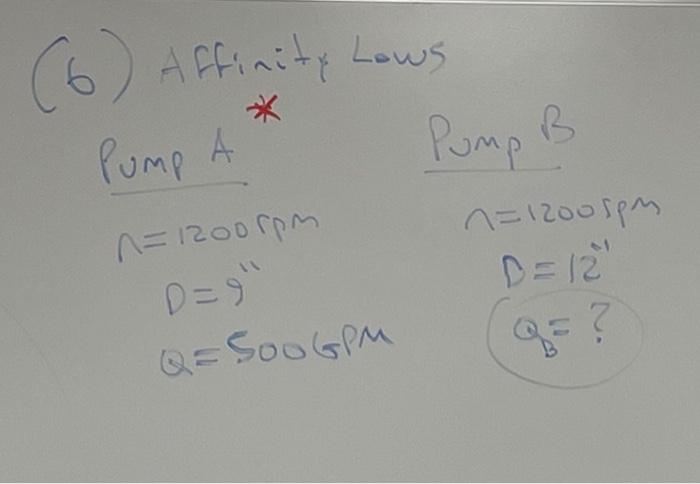 (6) Affinity Laws
*
Pump A
n=1200rpm
D=9"
Q=500GPM
Pump B
n=1200rpm
D=12"
Q_B=?